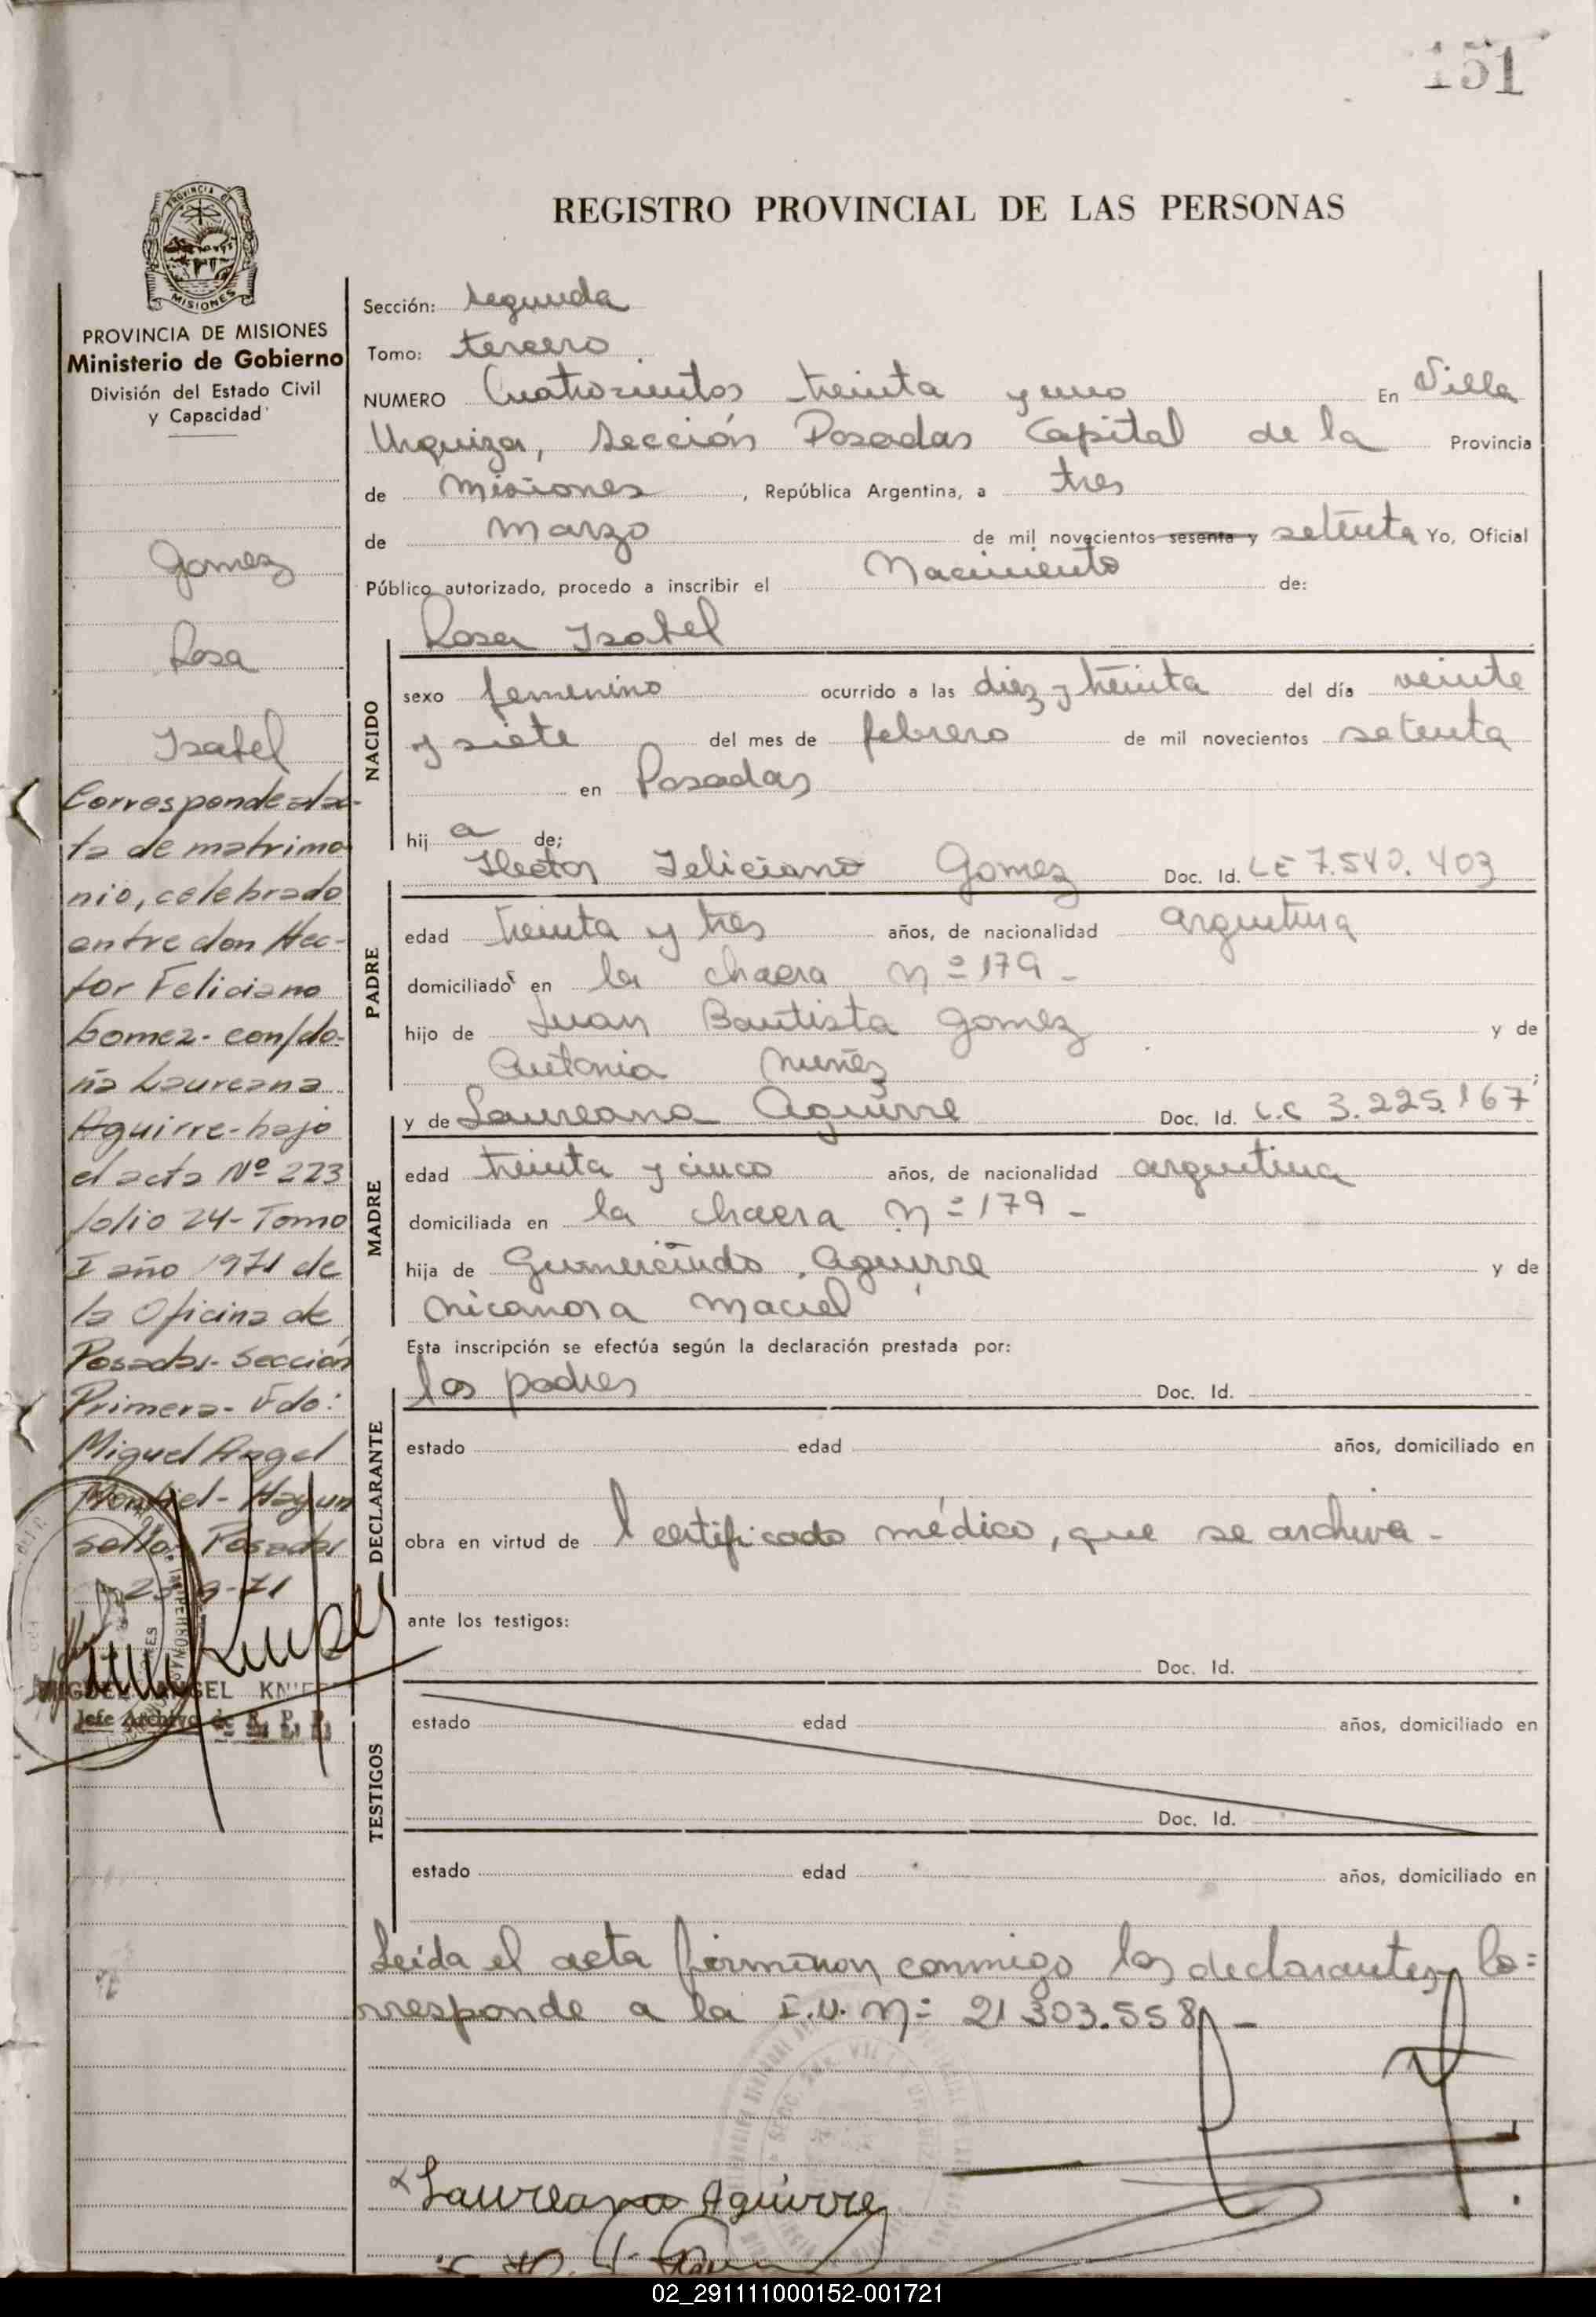 151
REGISTRO PROVINCIAL DE LAS PERSONAS
MISIONES
PROVINCIA DE MISIONES
Ministerio de Gobierno
División del Estado Civil
y Capacidad
Gomez
Rosa
Isabel
Corresponde al ac-
ta de matrimo
nio, celebrado
entre don Hec-
tor Feliciano
Gomez- con/do-
ña Laureana
Aguirre- bajo
el acta Nº 223
folio 24- Tomo
I año 1971 de
la Oficina de
Posadas- Sección
Primera- Fdo:
Miguel Angel
Montiel- Hay un
sello: Posadas
MIGUEL ANGEL
Jefe Archivo de R. P. P.
Sección: segunda
Tomo: tercero
NUMERO Cuatrocientos treinta y uno En Villa
Urquiza, Sección Posadas Capital de la Provincia
de Misiones, República Argentina, a tres
de Marzo de mil novecientos sesenta y setenta Yo, Oficial
Público autorizado, procedo a inscribir el Nacimiento de:
Rosa Isabel
NACIDO
sexo femenino ocurrido a las diez y treinta del día veinte
y siete del mes de febrero de mil novecientos setenta
en Posadas
hij a de;
Hector Feliciano Gomez Doc. Id. LE 7.540.403
PADRE
edad treinta y tres años, de nacionalidad argentina
domiciliado en la chacra Nº 179-
hijo de Juan Bautista Gomez y de
Antonia Nuñez
y de Laureana Aguirre Doc. Id. L.C 3.225.167
MADRE
edad treinta y cinco años, de nacionalidad argentina
domiciliada en la chacra Nº 179-
hija de Gumercindo Aguirre y de
Nicanora Maciel
Esta inscripción se efectúa según la declaración prestada por:
los padres Doc. Id.
DECLARANTE
estado edad años, domiciliado en
obra en virtud de l certificado médico, que se archiva-
ante los testigos:
Doc. Id.
TESTIGOS
estado edad años, domiciliado en
Doc. Id.
estado edad años, domiciliado en
Leída el acta firmaron conmigo los declarantes, Co=
rresponde a la I.U. Nº 21303.558-
Laureana Aguirre
02_291111000152-001721